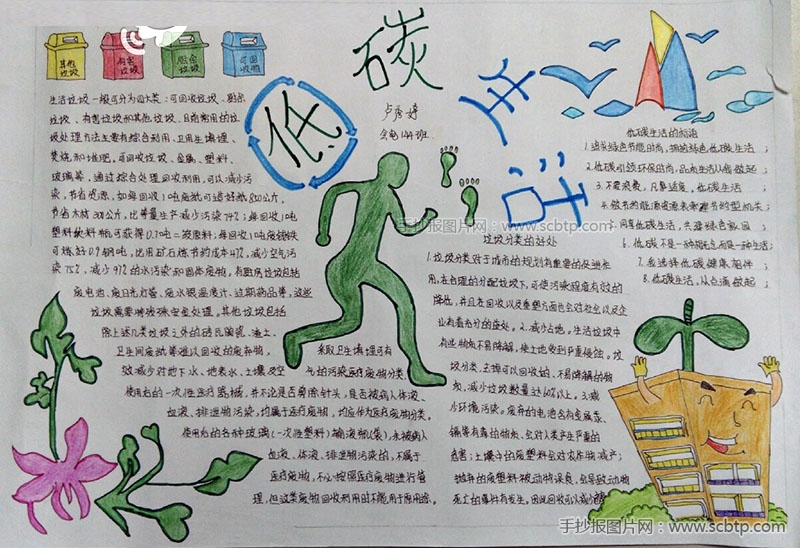 其他垃圾
有害垃圾
厨余垃圾
可回收物
低碳生活
卢秀婷
会电1144班
生活垃圾一般可分为四大类：可回收垃圾、厨余
垃圾、有害垃圾和其他垃圾，目前常用的垃
圾处理方法主要有综合利用、卫生填埋、
焚烧和堆肥，可回收垃圾、金属、塑料、
玻璃等，通过综合处理回收利用，可以减少污
染，节省资源，如每回收1吨废纸可造好纸850公斤，
节省木材300公斤，比等量生产减少污染74%；每回收1吨
塑料饮料瓶可获得0.7吨二级原料；每回收1吨废钢铁
可炼好0.9钢吨，比用矿石炼节约成本47%，减少空气污
染75%，减少97%的水污染和固体废物，有厨房垃圾包括
废电池、废日光灯管、废水银温度计、过期药品等，这些
垃圾需要特殊安全处理。其他垃圾包括
除上述几类垃圾之外的砖瓦陶瓷、渣土、
卫生间废纸等难以回收的废弃物，
采取卫生填埋可有
效减少对地下水、地表水、土壤及空
气的污染医疗废物分类。
使用后的一次性医疗器械，并不论是否剔除针头，是否被病人体液、
血液、排泄物污染，均属于医疗废物，均应作为医疗废物分类。
使用后的各种玻璃（一次性塑料）输液瓶（袋），未被病人
血液、体液、排泄物污染的，不属于
医疗废物，不必按照医疗废物进行管
理，但这类废物回收利用时不能用于原用途。
垃圾分类的好处
1.垃圾分类对于城市的规划有重要的促进作
用，在合理的分配垃圾下，可使污染程度有效的
降低，并且在回收以及重塑方面也会对社会以及企
业有着充分的益处。2.减少占地。生活垃圾中
有些物质不易降解，使土地受到严重侵蚀。垃
圾分类，去掉可以回收的、不易降解的物
质，减少垃圾数量达60%以上。3.减
少环境污染。废弃的电池含有金属汞、
镉等有毒的物质，会对人类产生严重的
危害；土壤中的废塑料会对农作物减产；
抛弃的废塑料被动物误食，会导致动物
死亡的事件有发生。因此回收可以减少危害
低碳生活的标语
1.追求绿色节能时尚，拥抱绿色低碳生活；
2.低碳引领环保时尚，品质生活从俭做起；
3.不要浪费，凡事适度，低碳生活；
4.做节约能源资源来建节约型机关；
5.同享低碳生活，共建绿色家园；
6.低碳不是一种概念，而是一种生活；
7.我选择低碳健康相伴；
8.低碳生活，从点滴做起；
手抄报图片网：www.scbtp.com
手抄报图片网：www.scbtp.com